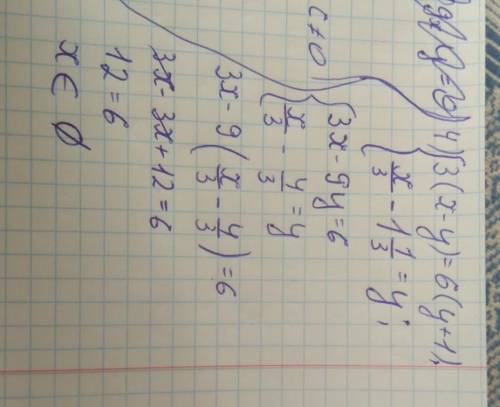 4) { 3(x-y)=6(y+1);
x/3 - 1 1/3 = y;
{ 3x-9y=6
x/3 - 4/3 = y
3x-9(x/3 - 4/3)=6
3x-3x+12=6
12=6
x∈∅
c≠0